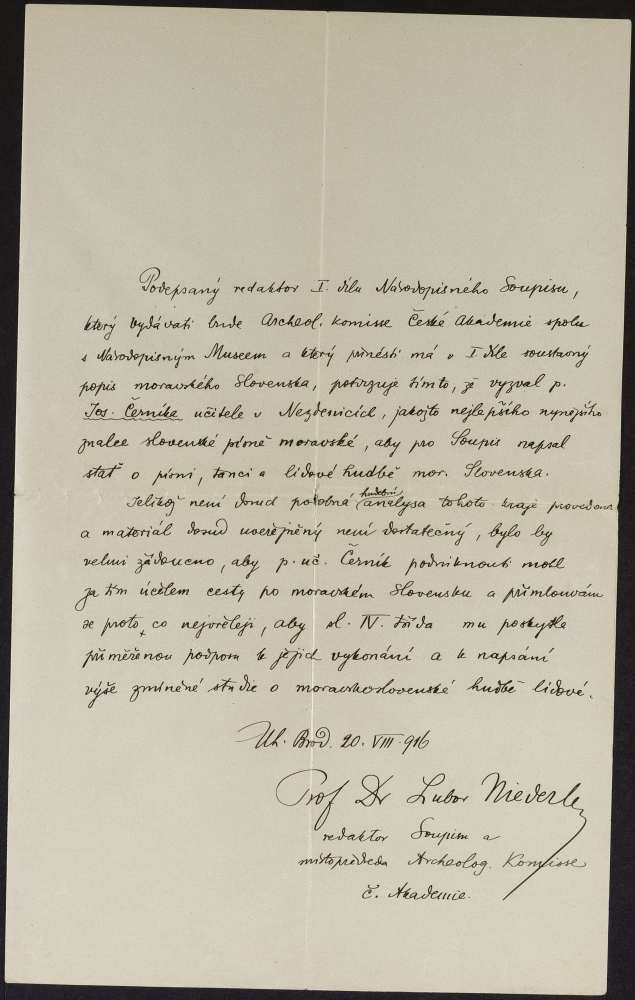 Podepsaný redaktor I. dílu Národopisného Soupisu,
který vydávati bude Archeol. komisse České Akademie spolu
s Národopisným Museem a který přinésti má v I díle soustavný
popis moravského Slovenska, potvrzuje tímto, že vyzval p.
Jos. Černíka učitele v Nezdenicích, jakožto nejlepšího nynějšího
znalce slovenské písně moravské, aby pro Soupis napsal
stať o písni, tanci a lidové hudbě mor. Slovenska.
Jelikož není dosud podobná hudební analysa tohoto kraje provedena
a materiál dosud uveřejněný není dostatečný, bylo by
velmi žádoucno, aby p. uč. Černík podniknouti mohl
za tím účelem cesty po moravském Slovensku a přimlouvám
se proto, co nejvřeleji, aby sl. IV. třída mu poskytla
přiměřenou podporu k jejich vykonání a k napsání
výše zmíněné studie o moravskoslovenské hudbě lidové.
Uh. Brod. 20. VIII. 916
Prof Dr Lubor Niederle
redaktor Soupisu a
místopředseda Archeolog. Komisse
č. Akademie.